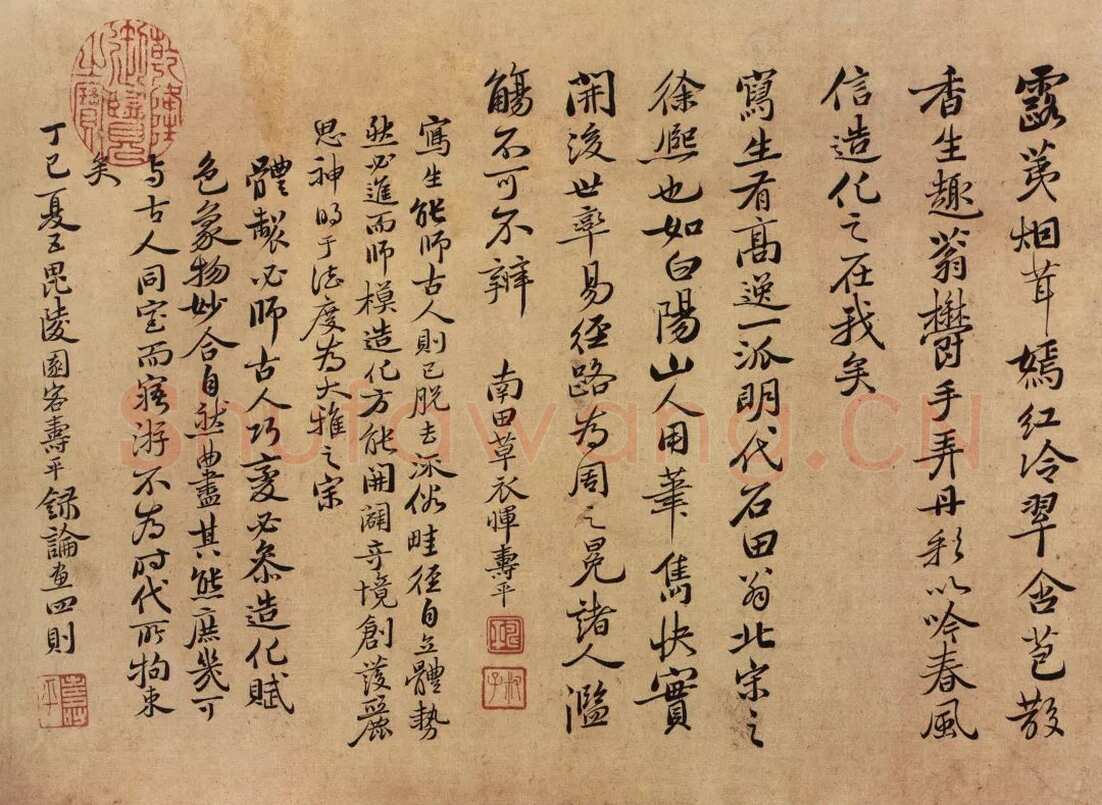 露荑烟茸嫣红冷翠含苞散
香生趣蓊欝手弄丹彩以吟春風
信造化之在我矣
寫生有高逸一派明代石田翁北宋之
徐熙也如白陽山人用筆雋快實
開後世率易徑路為周之冕諸人濫
觴不可不辨
南田草衣惲壽平
寫生能師古人則已脱去派俗畦徑自立體勢
然必進而師模造化方能開闢奇境創獲麗
思神明于法度為大雅之宗
體製必師古人巧變必參造化賦
色象物妙合自然曲盡其態庶幾可
与古人同室而寤游不為时代所拘束
矣
丁巳夏五毘陵園客壽平録論畫四則
乾隆御覽之寶
壽平
Shufawang.CN